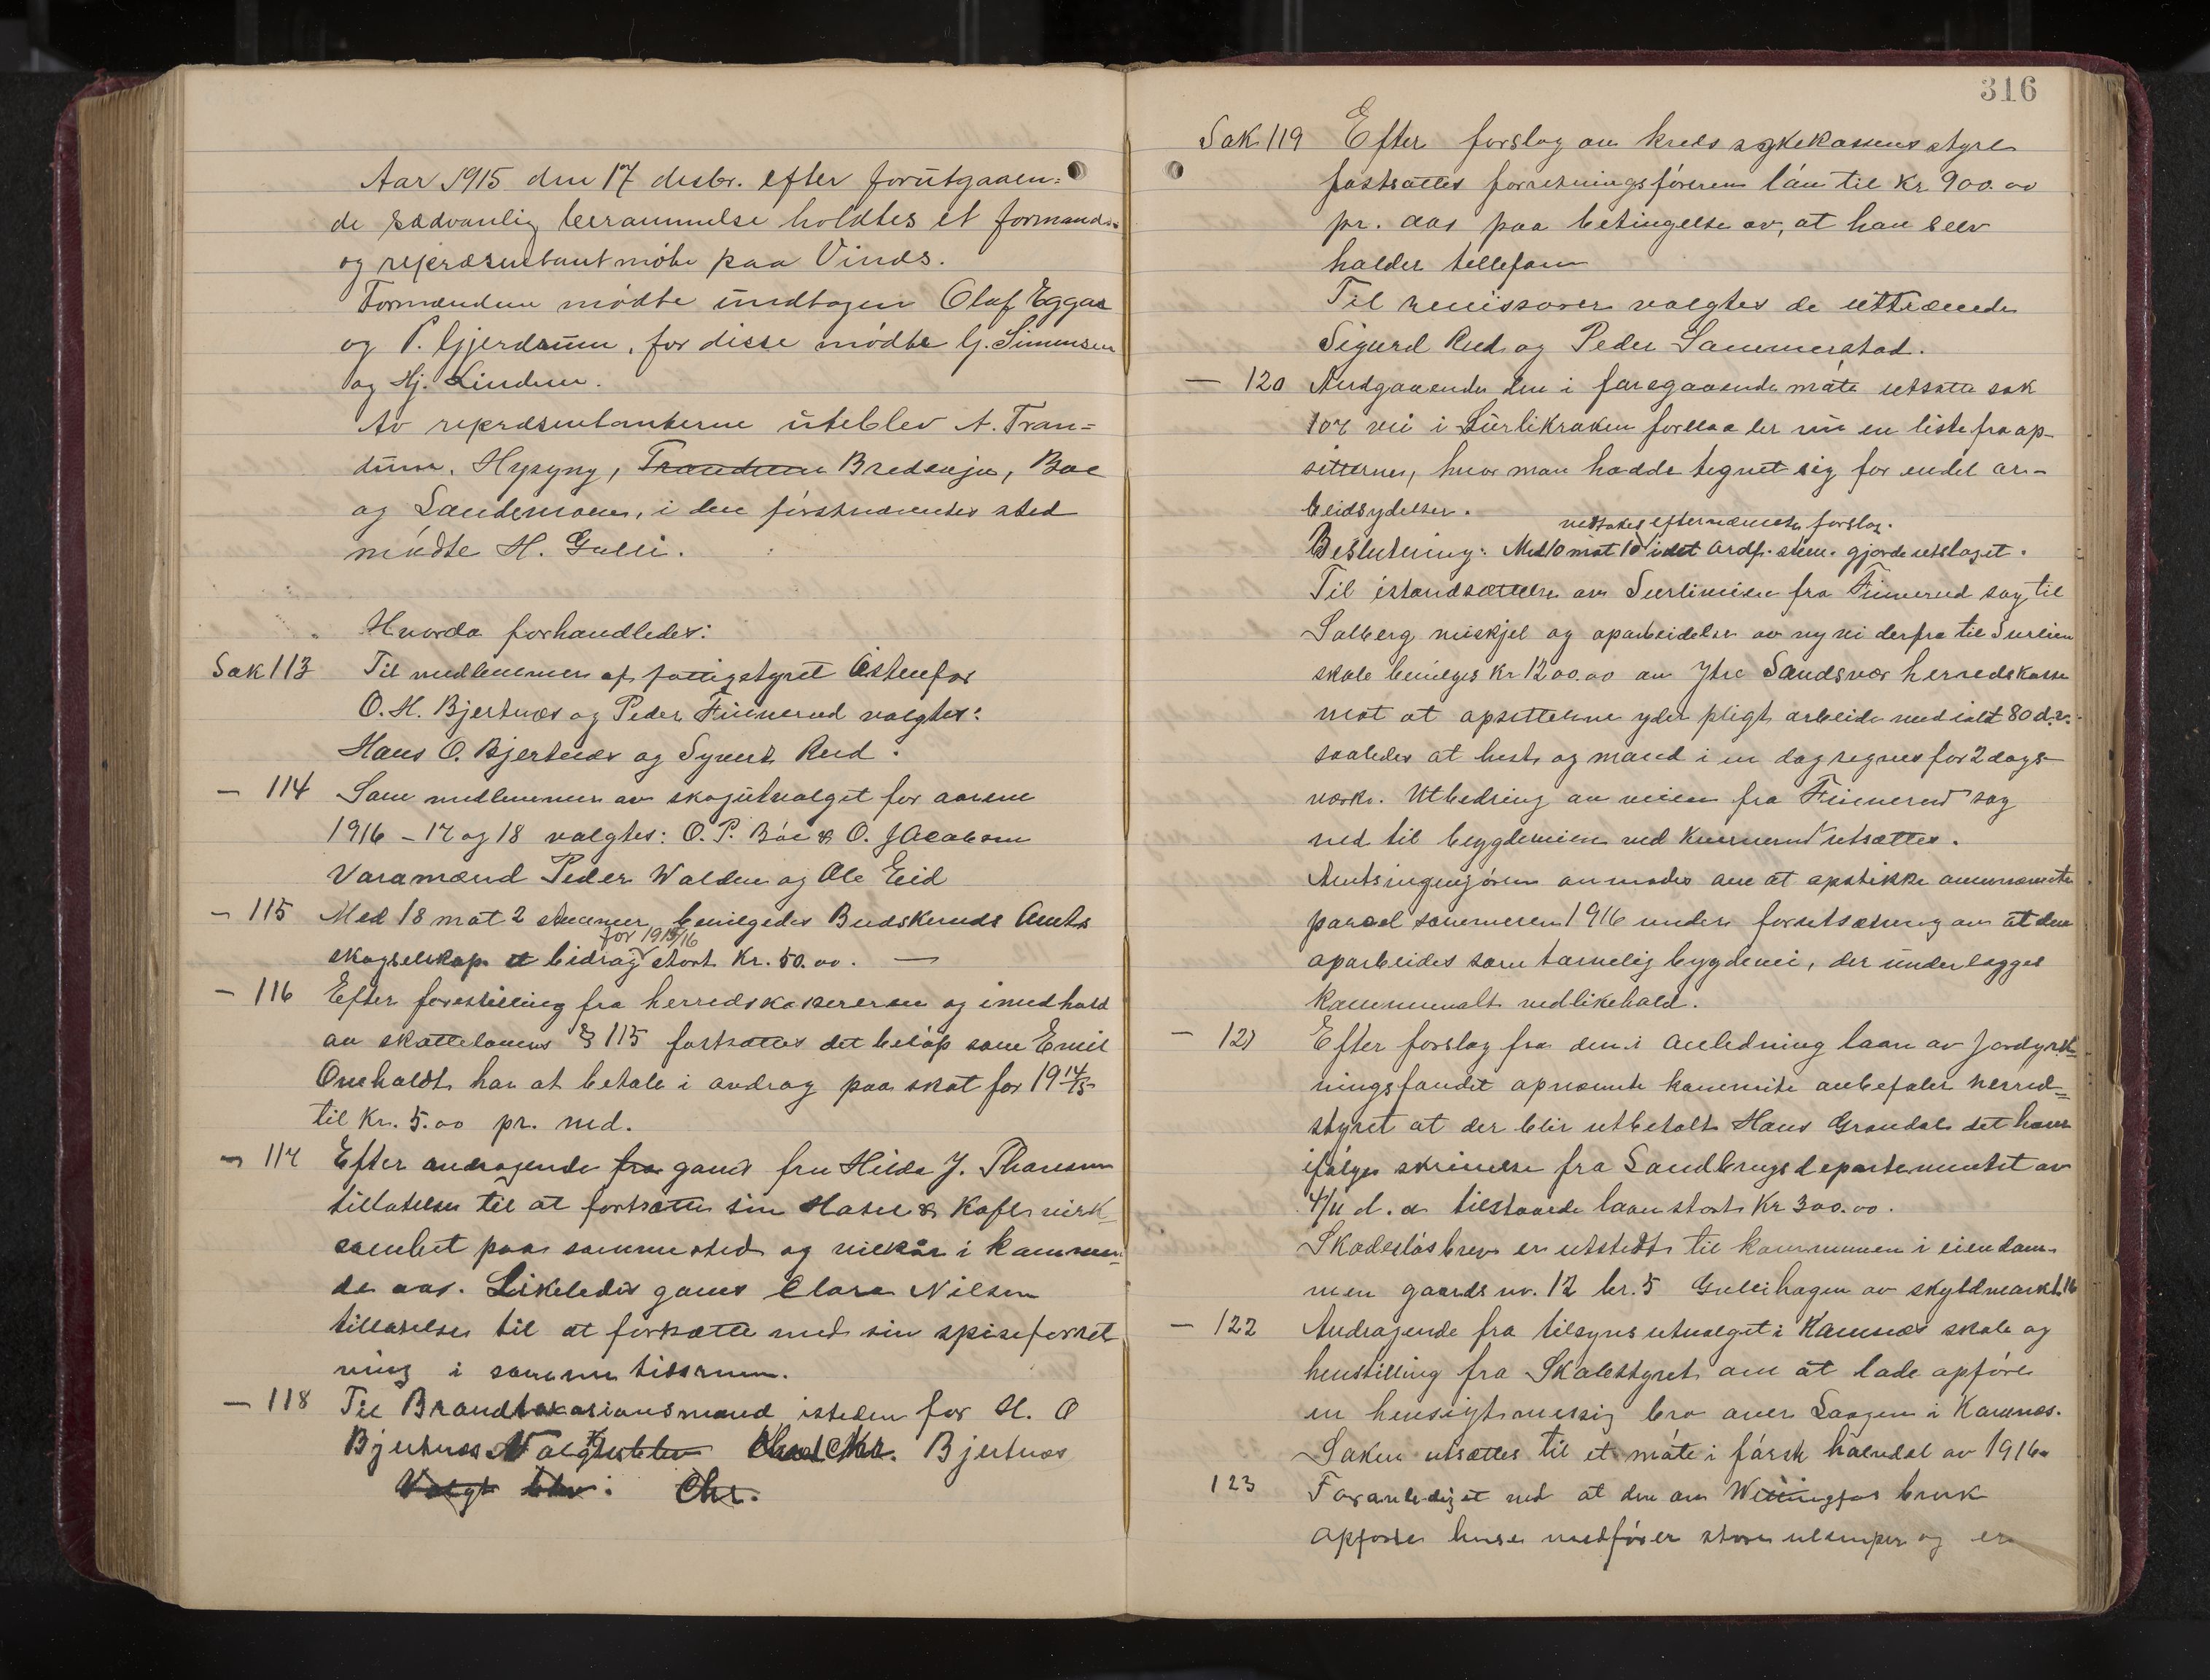 Aar 1915 den 17 desbr. efter forutgaaen=
de sædvanlig berammelse holdtes et formands-
og repræsentantmöte paa Vinds.
Formændene mödte undtagen Olaf Eggar
og P. Gjerdrum, for disse mödte G. Simensen
og Hj. Lindem.
Av repræsentanterne uteblev A. Tran=
dum, Hysyng, Trandum Bredveju, Boe
og Landemoen, i den förstnævntes sted
mödte H. Gulli.
Hvorda forhandledes:
Sak 113 Til medlemmer af fattigstyret istenfor
O. H. Bjertnæs og Peder Finnerud valgtes:
Hans O. Bjertnæs og Syvert Rud.
— 114 Som medlemmer av skogutvalget for aarene
1916 - 17 og 18 valgtes: O. P. Böe & O. Jacobsen
Varamænd Peder Walden og Ole Eid
— 115 Med 18 mot 2 stemmer bevilgedes Buskeruds Amts
for 1915/16
skogselskap et bidrag stort Kr. 50.00. —
— 116 Efter forestilling fra herredskassereren og i medhold
av skattelovens § 115 fastsattes det belöp som Emil
Omholdt har at betale i avdrag paa skat for 1914/15
til Kr. 5.00 pr. md.
— 117 Efter andragende fra gaves fru Hilda J. Thoresen
tillatelse til at fortsætte sin Hotel & Kafe virk-
somhet paa samme sted og vilkår i kommen=
de aar. Likeledes gaves Clara Nilsen
tillatelse til at fortsætte med sin spiseforret
ning i samme tidsrum.
— 118 Til Brandtakstionsmand isteden for H. O
Bjertnæs Valgtes blev Chr. Bjertnæs
Valgt blev: Chr.
316
Sak 119 Efter forslag av kredssykekassens styre
fastsattes forretningsförerens lön til Kr 900.00
pr. aar paa betingelse av, at han selv
holder tellefon
Til revissorer valgtes de uttrædende
Sigurd Rud og Peder Sammerstad.
— 120 Andgaaende den i foregaaende möte utsatte sak
107 vei i Surlikroken forelaa der nu en liste fra op-
sitterne, hvor man hadde tegnet sig for endel ar-
beidsydelser.
vedtokes efternævnte forslag.
Beslutning: Med 10 mot 10 idet ordf. stem. gjorde utslaget.
Til istandsættelse av Surliveien fra Finnerud sag til
Solberg veiskjel og oparbeidelse av ny vei derfra til Surlien
skole bevilges Kr 1200.00 av Ytre Sandsvær herredskasse
mot at opsitterne yder pligtarbeide med ialt 80 d.v.
saaledes at hest og mand i en dag regnes for 2 dags-
værk. Utbedring av veien fra Finnerud sag
ned til bygdeveien ved Kvernerud utsættes.
Amtsingeniören anmodes om at opstikke omnævnte
parsel sommeren 1916 under forutsætning av at den
oparbeides som tarvelig bygdevei, der underlægges
kommunalt vedlikehold.
— 121 Efter forslag fra den i anledning laan av Jordyrk=
ningsfondet opnævnte komite anbefaler herred=
styret at der blir utbetalt Hans Grondal det ham
ifölge skrivelse fra Landbrugsdepartementet av
4/11 d. a. tilstaaede laan stort Kr 300.00.
Skadeslösbrev er utstedt til kommunen i eiendom-
men gaards nr. 12 br. 5 Gullihagen av skyldmark 1.16
— 122 Andragende fra tilsynsutvalget i Komnæs skole og
henstilling fra Skolestyret om at lade opföre
en hensigtsmessig bro over Laagen i Komnæs.
Saken utsættes til et möte i förste halvdel av 1916.
123 Foranlediget ved at den av Wittingfos bruk
opförte huse medförer store ulemper og er